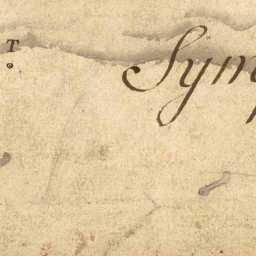 T
Sym